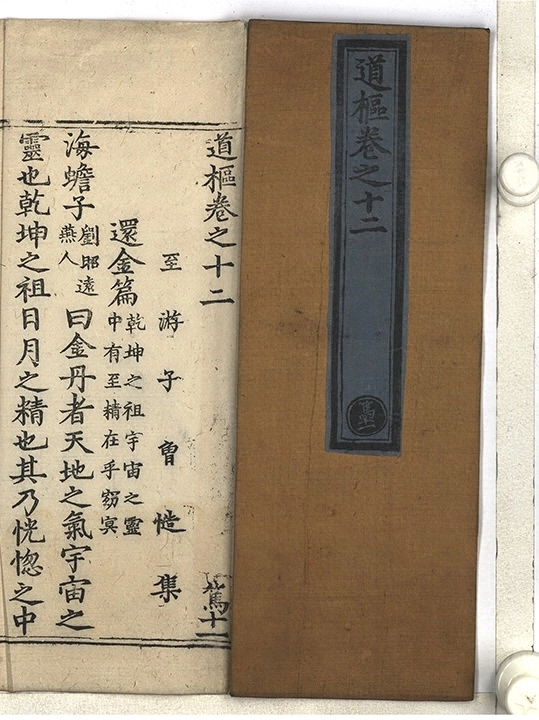 道樞卷之十二
篤
道樞卷之十二 篤
至游子曾慥集
還金篇 乾坤之祖宇宙之靈
中有至精在乎窈冥
海蟾子 劉昭遠
燕人 曰金丹者天地之氣宇宙之
靈也乾坤之祖日月之精也其乃恍惚之中